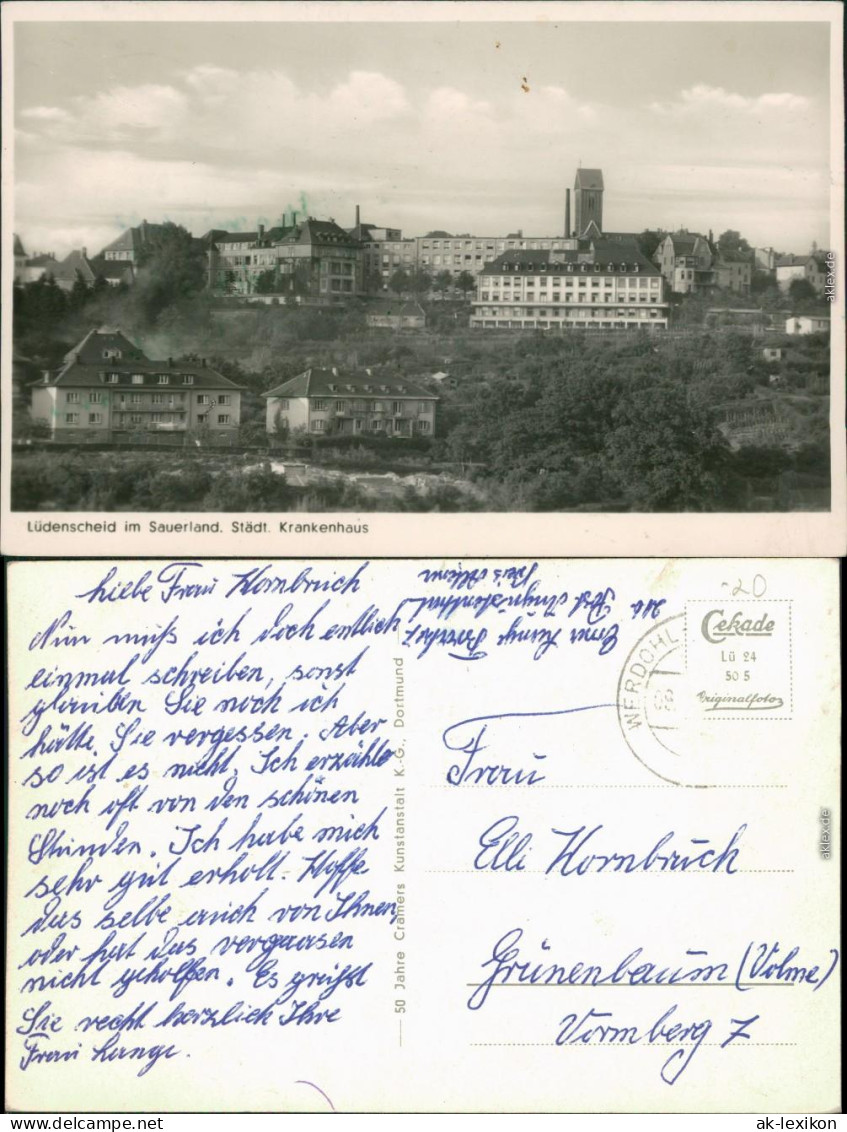 Lüdenscheid im Sauerland. Städt. Krankenhaus
aklex.de
Liebe Frau Hornbruch
Nun muß ich doch entlich
einmal schreiben, sonst
glauben Sie noch ich
hätte Sie vergessen. Aber
so ist es nicht. Ich erzähle
noch oft von den schönen
Stunden. Ich habe mich
sehr gut erholt. Hoffe
das selbe auch von Ihnen,
oder hat das vergaasen
nicht geholfen. Es grüßt
Sie recht herzlich Ihre
Frau Lange.
50 Jahre Cramers Kunstanstalt K.-G., Dortmund
Lange
-20
WERDOHL
Cekade
Lü 24
50 5
Originalfoto
Frau
Elli Hornbruch
Grünenbaum (Volme)
Vormberg 7
aklex.de
ak-lexikon.de